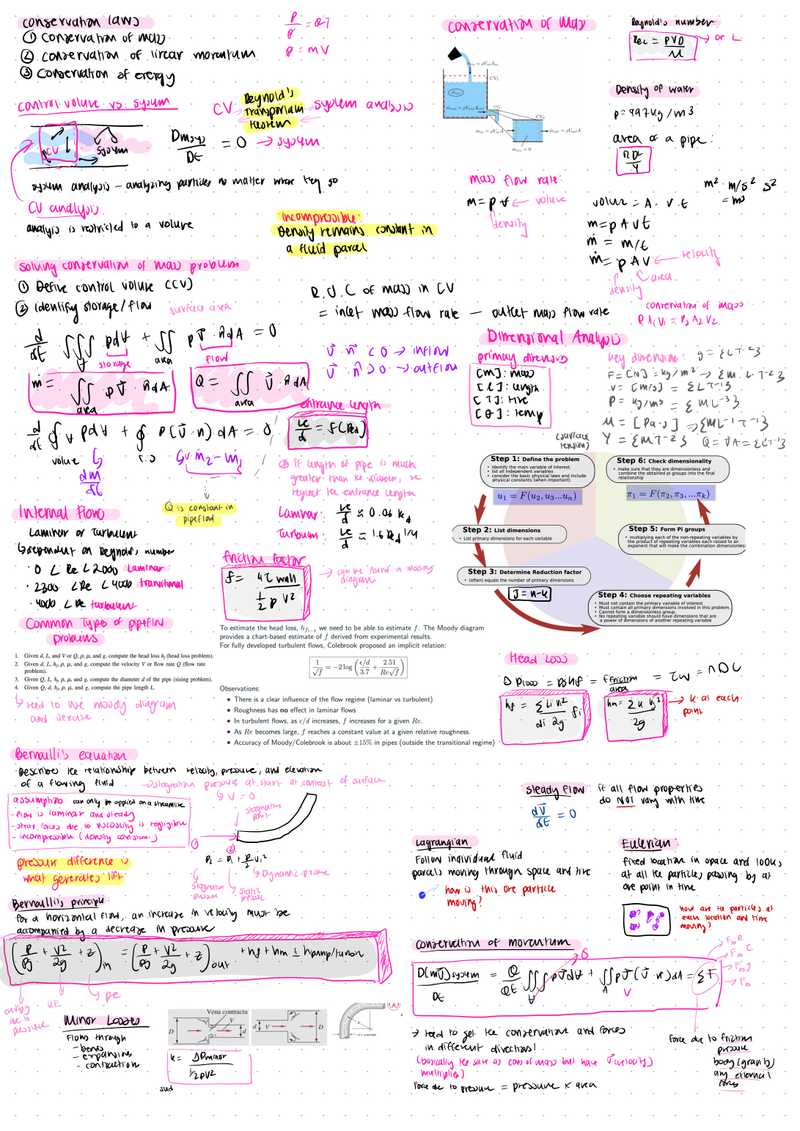 conservation laws
① conservation of mass
② conservation of linear momentum
③ conservation of energy
control volume vs. system
CV
Reynold's Transportation theorem
system analysis
CV
system
Dmsys/Dt = 0 → system
system analysis – analysing particles no matter where they go
CV analysis
analysis is restricted to a volume
incompressible:
Density remains constant in
a fluid parcel
conservation of mass
mass flow rate:
← volume
density
Reynold's number
or L
Density of water
ρ = 997 kg/m3
area of a pipe:
volume = A · v · t
ṁ = ρ A V t
ṁ = m/t
ṁ = ρ A V ← velocity
area
density
conservation of mass
ρ A1 V1 = ρ2 A2 V2
solving conservation of mass problem
① Define control volume (CV)
② Identify storage/flow
surface area
d/dt ∭ ρdV + ∬ ρ v⃗ · n̂ dA = 0
storage
area
flow
ṁ = ∬ ρ v⃗ · n̂ dA
area
Q = ∬ v⃗ · n̂ dA
area
R.O.C of mass in CV
= inlet mass flow rate – outlet mass flow rate
v⃗ · n⃗ < 0 → inflow
v⃗ · n⃗ > 0 → outflow
volume
Q is constant in
pipeflow
entrance length
Le/d = f(Red)
If length of pipe is much
greater than the diameter, we
neglect the entrance length
Laminar:
Turbulent:
Internal flows
Laminar or Turbulent
↳ dependent on Reynolds number
· 0 < Re < 2000 Laminar
· 2300 < Re < 4000 transitional
· 4000 < Re turbulent
friction factor
f = 4τwall / ½ρV²
→ can be found w moody
diagram
Dimensional Analysis
primary dimensions
[M]: mass
[L]: length
[T]: time
[θ]: temp
key dimensions:
(surface tension)
Step 1: Define the problem
• Identify the main variable of interest.
• list all independent variables
• consider the basic physical laws and include
physical constants (when important)
u1 = F(u2, u3...un)
Step 6: Check dimensionality
• make sure that they are dimensionless and
combine the obtained pi groups into the final
relationship
π1 = F(π2, π3, ...πk)
Step 2: List dimensions
• List primary dimensions for each variable
Step 5: Form Pi groups
• multiplying each of the non-repeating variables by
the product of repeating variables each raised to an
exponent that will make the combination dimensionless
Step 3: Determine Reduction factor
• (often) equals the number of primary dimensions
j = n-k
Step 4: Choose repeating variables
• Must not contain the primary variable of interest.
• Must contain all primary dimensions involved in this problem.
• Cannot form a dimensionless group.
• No repeating variable should have dimensions that are
a power of dimensions of another repeating variable
Common Types of pipeflow
problems
1. Given d, L, and V or Q, ρ, μ, and g, compute the head loss hf (head loss problem).
2. Given d, L, hf, ρ, μ, and g, compute the velocity V or flow rate Q (flow rate
problem).
3. Given Q, L, hf, ρ, μ, and g, compute the diameter d of the pipe (sizing problem).
4. Given Q, d, hf, ρ, μ, and g, compute the pipe length L.
↳ need to use moody diagram
and iterate
To estimate the head loss, hf1-2 we need to be able to estimate f. The Moody diagram
provides a chart-based estimate of f derived from experimental results.
For fully developed turbulent flows, Colebrook proposed an implicit relation:
1/√f = −2 log (ε/d / 3.7 + 2.51 / Re√f)
Observations:
• There is a clear influence of the flow regime (laminar vs turbulent)
• Roughness has no effect in laminar flows
• In turbulent flows, as ε/d increases, f increases for a given Re.
• As Re becomes large, f reaches a constant value at a given relative roughness.
• Accuracy of Moody/Colebrook is about ±15% in pipes (outside the transitional regime)
Head Loss
→ k at each
point
Bernoulli's equation
Describes the relationship between velocity, pressure, and elevation
of a flowing fluid
→ stagnation pressure at start at contact of surface
↳ V = 0
assumptions can only be applied on a streamline
- flow is laminar and steady
- shear forces due to viscosity is negligible
- incompressible (density constant)
stagnation point
P2 = P1 + ρ/2 V1²
stagnation pressure
static pressure
Dynamic pressure
pressure difference is
what generates lift
Bernoulli's principle
For a horizontal flow, an increase in velocity must be
accompanied by a decrease in pressure
(P/ρg + V²/2g + z)in = (P/ρg + V²/2g + z)out + hf + hm ± hpump/turbine
energy due to pressure
KE
PE
Minor Losses
Flows through
- bends
- expansions
- contraction
Vena contracta
D
V
d
k = ΔPminor / ½ρV²
steady flow: if all flow properties
do NOT vary with time
dv⃗/dt = 0
Lagrangian
Follow individual fluid
parcels moving through space and time
how is this one particle
moving?
Eulerian:
fixed location in space and looks
at all the particles passing by at
one point in time
how are the particles at
each location and time
moving?
conservation of momentum
→ need to get the conservations and forces
in different directions!
(basically the same as cons of mass but have v⃗ (velocity)
multiplied)
Force due to pressure = pressure × area
Force due to friction
pressure
body (gravity)
any external
forces